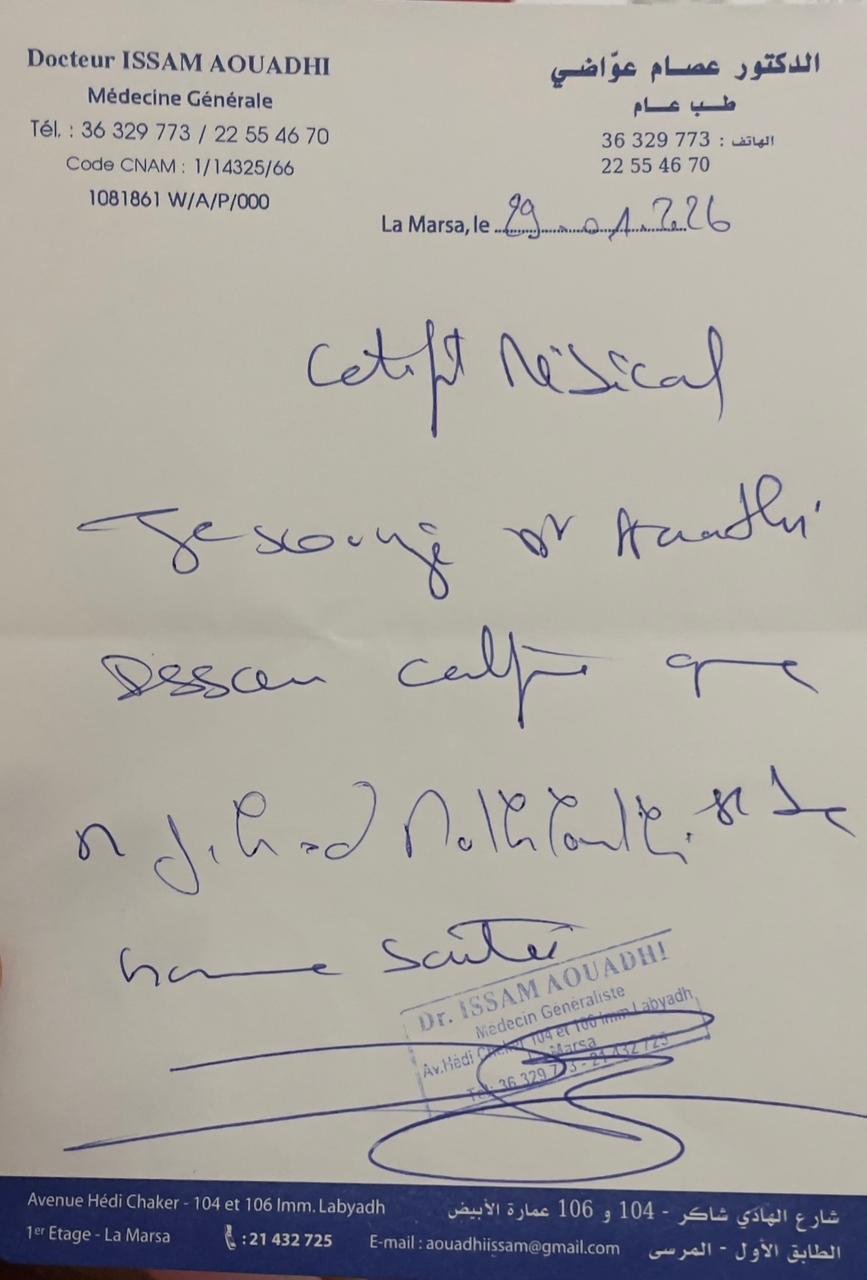 Docteur ISSAM AOUADHI
Médecine Générale
Tél. : 36 329 773 / 22 55 46 70
Code CNAM : 1/14325/66
1081861 W/A/P/000
الدكتور عصام عوّاضي
طب عام
الهاتف : 36 329 773
22 55 46 70
La Marsa, le 29.01.2026
Certificat Médical
Je soussigné Dr Aouadhi
Issam certifie que
Mr Jihed est de
bonne santé
Dr. ISSAM AOUADHI
Médecin Généraliste
Av. Hédi Chaker 104 et 106 Imm Labyadh
La Marsa
Tél: 36 329 773 - 21 432 725
Avenue Hédi Chaker - 104 et 106 Imm. Labyadh
1er Etage - La Marsa : 21 432 725 E-mail : aouadhiissam@gmail.com
شارع الهادي شاكر - 104 و 106 عمارة الأبيض
الطابق الأول - المرسى